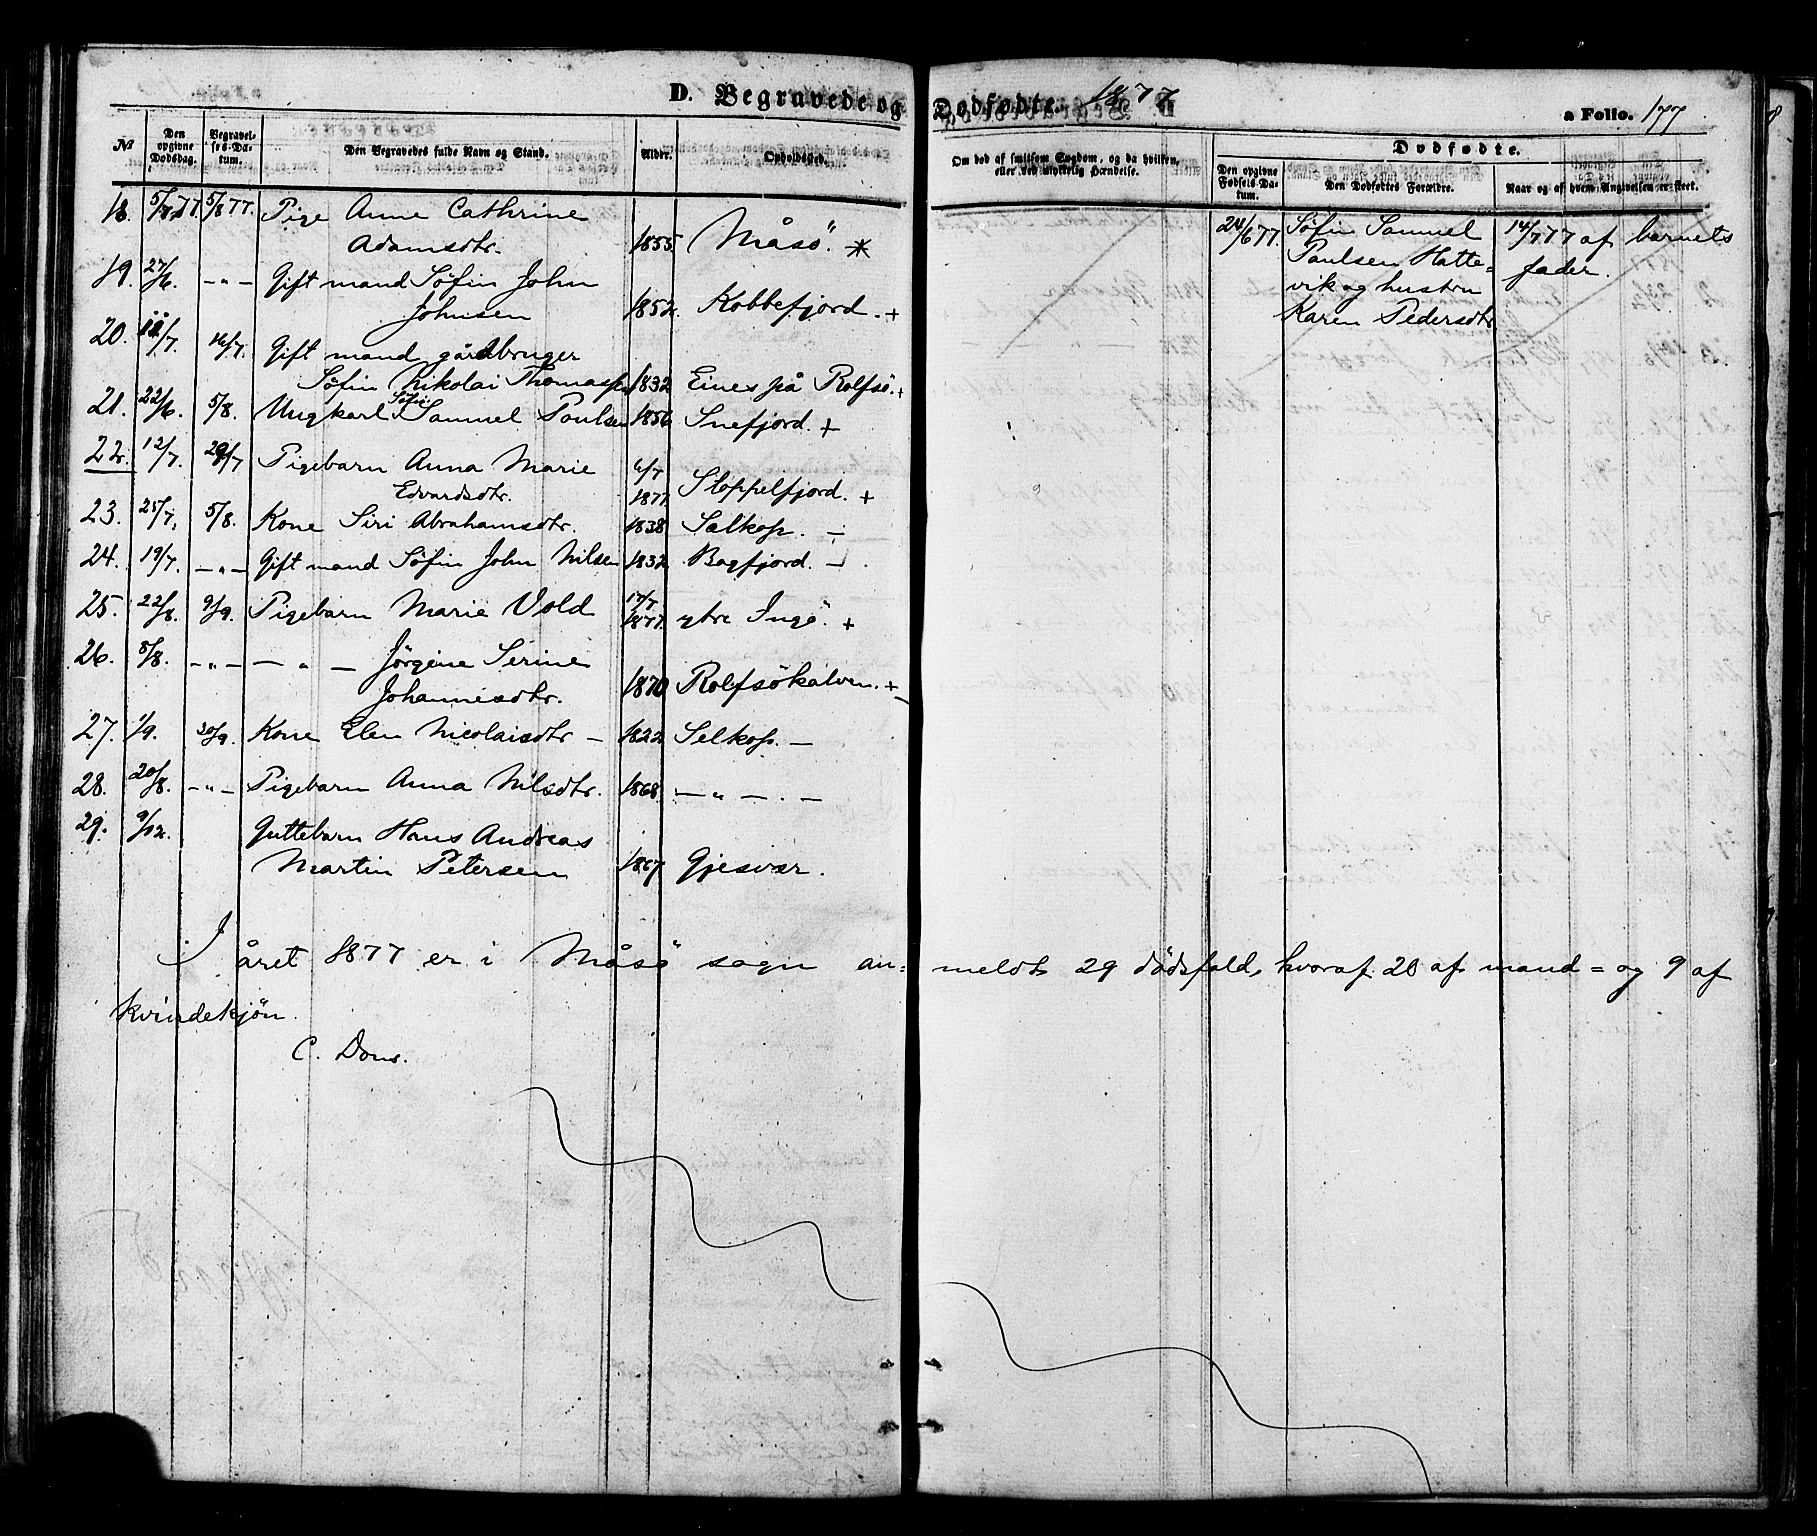 D. Begravede og Dødfødte. 1877
a Folio. 177
№ Den opgivne Dødsdag. Begravelses-Datum. Den Begravedes fulde Navn og Stand. Alder. Opholdssted. Om død af smitsom Sygdom, og da hvilken, eller ved ulykkelig Hændelse.
Dødfødte.
Den opgivne Fødsels-Datum. Den Dødfødtes Forældre. Naar og af hvem Angivelsen er skeet.
18. 5/8 77. 5/8 77. Pige Anne Cathrine
Adamsdtr. 1855. Måsö. *
19. 27/6. —"— Gift mand Søfin John
Johnsen 1852. Kobbefjord. +
20. /7. 16/7. Gift mand gårdbruger
Søfin Nikolai Thomassen 1832 Eines på Rolfsö. +
21. 22/6. 5/8. Ungkarl Søfin Samuel Poulsen 1856 Snefjord. +
22. 12/7. 29/7 Pigebarn Anna Marie 6/7
Edvardsdtr. 1877. Sloppelfjord. +
23. 25/7. 5/8. Kone Siri Abrahamsdtr. 1838 Sælkop. —
24. 19/7. —"— Gift mand Søfin John Nilsen 1832 Bagfjord. —
25. 22/8. 9/9. Pigebarn Marie Vold 17/7
1877. ytre Ingö. +
26. 8/8. —"— — " — Jörgine Serine
Johannesdtr. 1870 Rolfsökalven. +
27. 1/9. 30/9. Kone Elen Nicolaisdtr — 1822 Selkop. —
28. 20/8. —"— Pigebarn Anna Nilsdtr. 1868. — " —. —
29. 9/12. Guttebarn Hans Andreas
Martin Petersen 1867. Gjesvær.
24/6 77. Søfin Samuel 14/7 77 af barnets
Paulsen Hatte= fader.
vik og hustru
Karen Pedersdtr
I året 1877 er i Måsö sogn an= meldt 29 dødsfald, hvoraf 20 af mand= og 9 af
kvindekjön.
C. Dons.